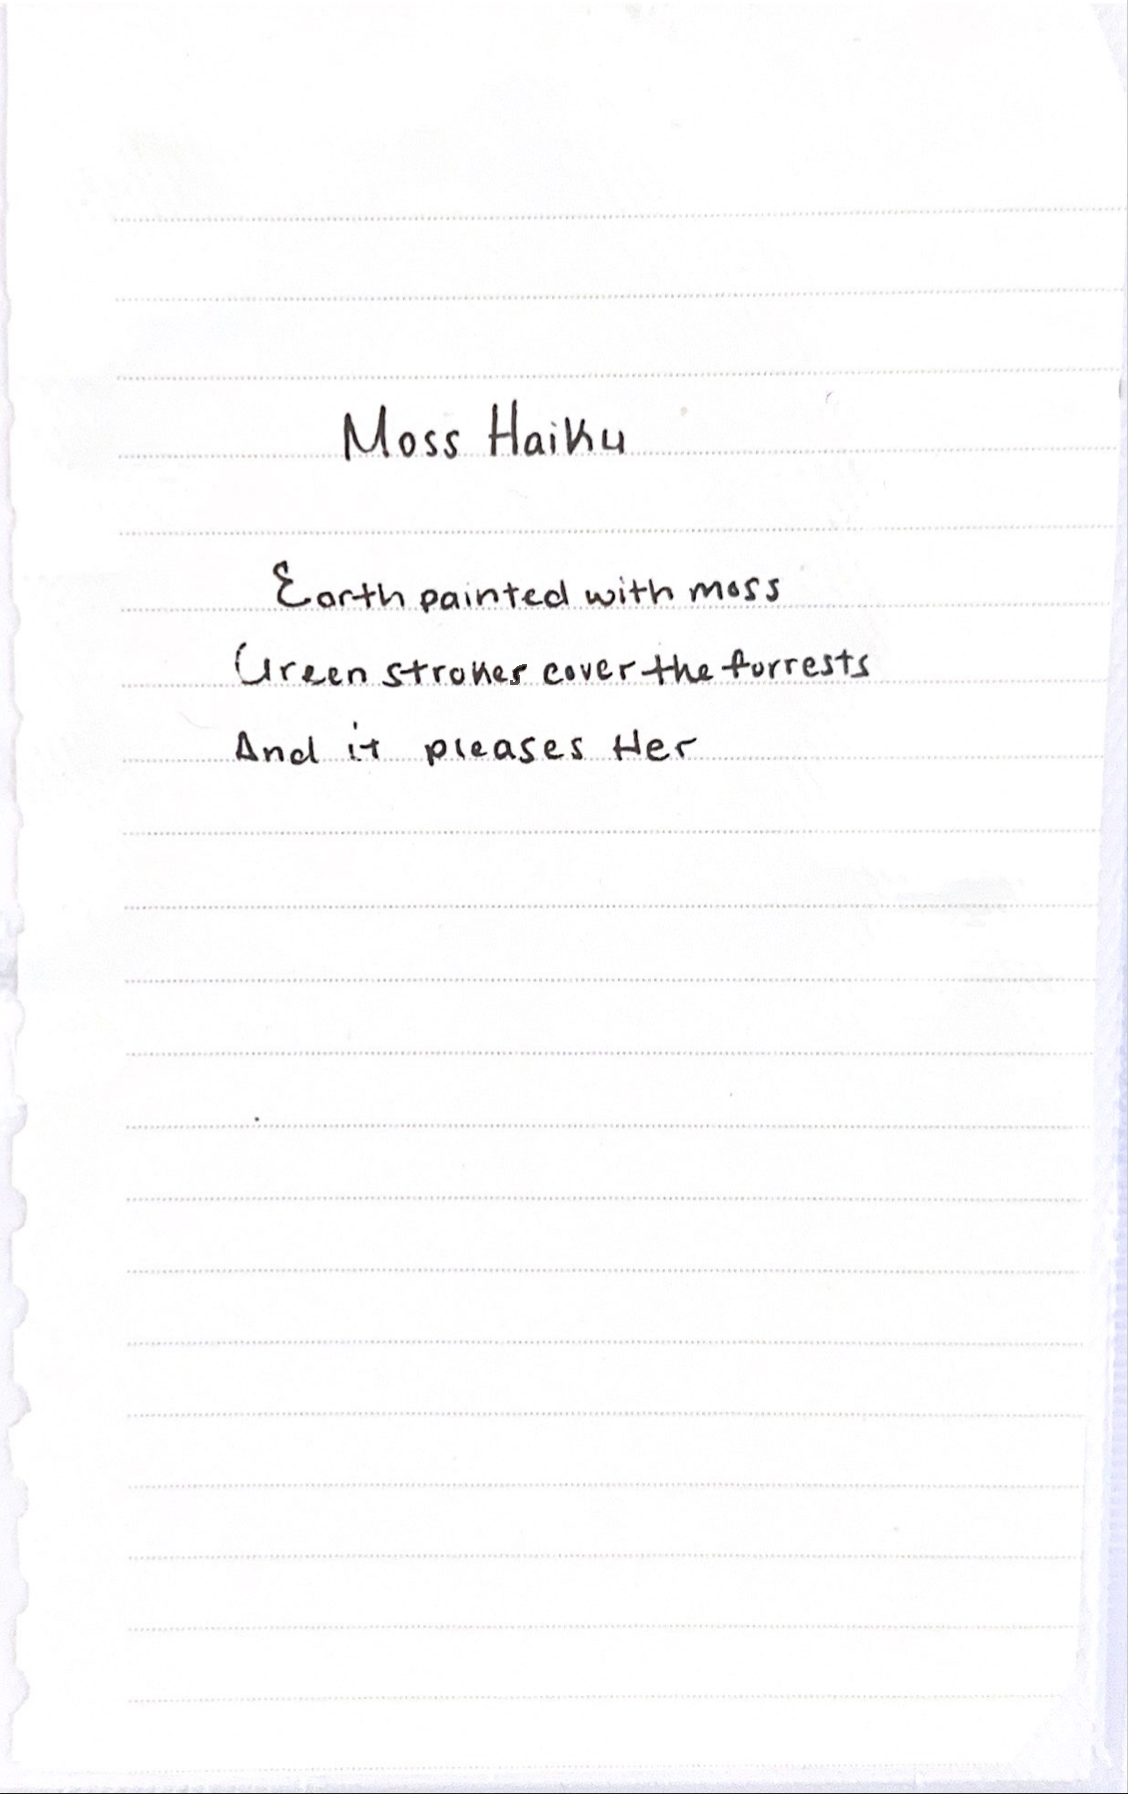 Moss Haiku
Earth painted with moss
Green strokes cover the forrests
And it pleases Her